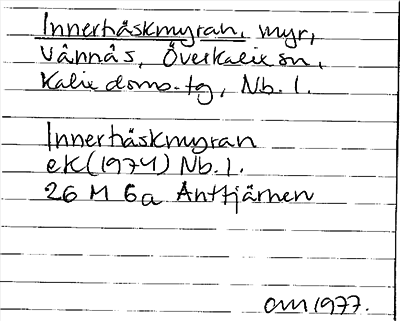 Innerhäskmyran, myr,
Vännäs, Överkalix sn,
Kalix doms.-tg, Nb. l.
Innerhäskmyran
ek (1974) Nb. l.
26 M 6a Anttjärnen
OM 1977.